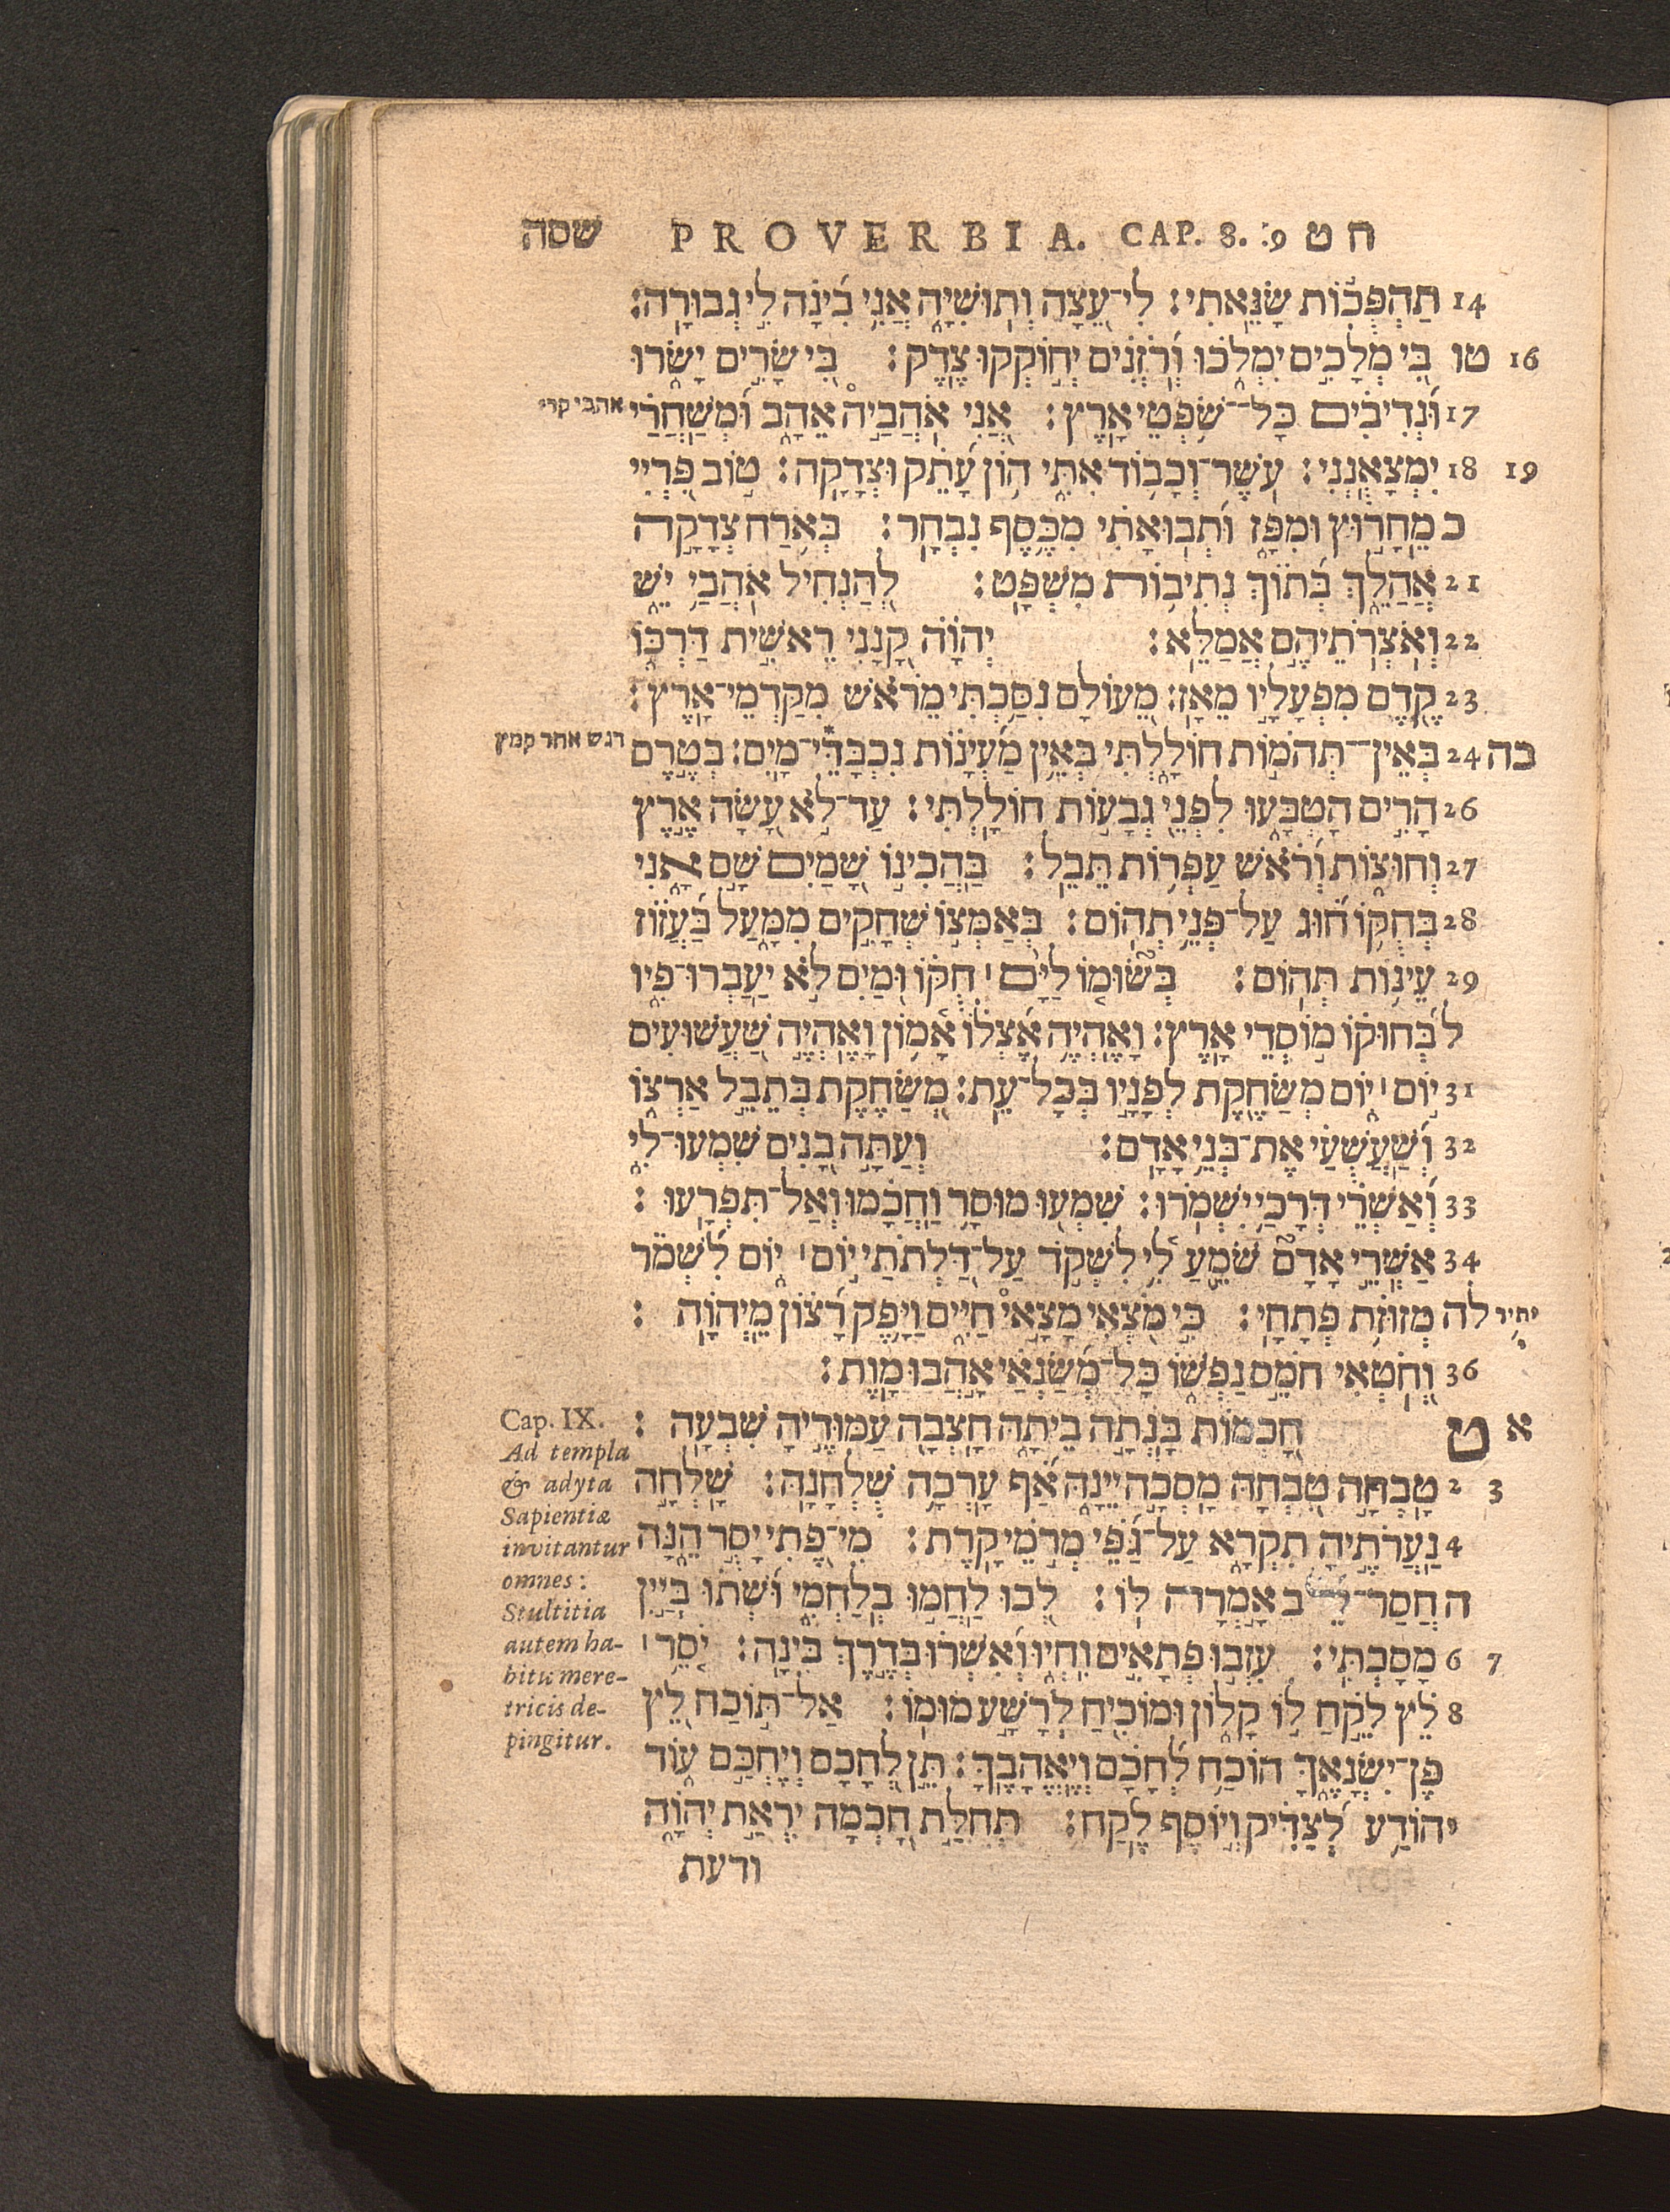 שסה PROVERBIA. CAP. 8. :9 ח ט
14 תַהְפֻּכ֣וֹת שָׂנֵֽאתִי׃ לִֽי־עֵ֭צָה וְתֽוּשִׁיָּ֑ה אֲנִ֥י בִ֝ינָ֗ה לִ֣י גְבוּרָֽה׃
16 טו בִּ֭י מְלָכִ֣ים יִמְלֹ֑כוּ וְ֝רֹזְנִ֗ים יְח֣וֹקְקוּ צֶֽדֶק׃ בִּ֭י שָׂרִ֣ים יָשֹׂ֑רוּ
17 וּ֝נְדִיבִ֗ים כָּל־שֹׁ֥פְטֵי אָֽרֶץ׃ אֲ֭נִי אֹהֲבַ֣יה אֵהָ֑ב וּ֝מְשַׁחֲרַ֗י
אהבי קרי
18 19 יִמְצָאֻֽנְנִי׃ עֹֽשֶׁר־וְכָב֥וֹד אִתִּ֑י ה֥וֹן עָ֝תֵ֗ק וּצְדָקָֽה׃ ט֣וֹב פִּ֭רְיִי
כ מֵחָר֣וּץ וּמִפָּ֑ז וּ֝תְבוּאָתִ֗י מִכֶּ֥סֶף נִבְחָֽר׃ בְּאֹֽרַח צְדָקָ֥ה
21 אֲהַלֵּ֑ךְ בְּ֝ת֗וֹךְ נְתִיב֥וֹת מִשְׁפָּֽט׃ לְהַנְחִ֖יל אֹהֲבַ֥י יֵ֑שׁ
22 וְאֹצְרֹ֖תֵיהֶ֣ם אֲמַלֵּֽא׃ יְֽהוָ֗ה קָ֭נָנִי רֵאשִׁ֣ית דַּרְכּ֑וֹ
23 קֶ֖דֶם מִפְעָלָ֣יו מֵאָֽז׃ מֵ֭עוֹלָם נִסַּ֥כְתִּי מֵרֹ֗אשׁ מִקַּדְמֵי־אָֽרֶץ׃
כה 24 בְּאֵין־תְּהֹמ֥וֹת חוֹלָ֑לְתִּי בְּאֵ֥ין מַ֝עְיָנ֗וֹת נִכְבַּדֵּי־מָֽיִם׃ בְּטֶ֣רֶם
דגש אחר קמץ
26 הָרִ֣ים הָטְבָּ֑עוּ לִפְנֵ֖י גְבָע֣וֹת חוֹלָֽלְתִּי׃ עַד־לֹ֣א עָ֭שָׂה אֶ֣רֶץ
27 וְחוּצ֑וֹת וְ֝רֹ֗אשׁ עַפְר֥וֹת תֵּבֵֽל׃ בַּהֲכִינ֣וֹ שָׁ֭מַיִם שָׁ֣ם אָ֑נִי
28 בְּח֥קוֹ ח֝֗וּג עַל־פְּנֵ֥י תְהֽוֹם׃ בְּאַמְּצ֣וֹ שְׁחָקִ֣ים מִמָּ֑עַל בַּ֝עֲז֗וֹז
29 עִינ֥וֹת תְּהֽוֹם׃ בְּשׂ֘וּמ֤וֹ לַיָּ֨ם ׀ חֻקּ֗וֹ וּ֭מַיִם לֹ֣א יַֽעַבְרוּ־פִ֑יו
ל בְּ֝חוּק֗וֹ מ֣וֹסְדֵי אָֽרֶץ׃ וָֽאֶהְיֶ֥ה אֶצְל֗וֹ אָ֫מ֥וֹן וָֽאֶהְיֶ֣ה שַׁ֭עֲשׁוּעִים
31 י֣וֹם ׀ י֑וֹם מְשַׂחֶ֖קֶת לְפָנָ֣יו בְּכָל־עֵֽת׃ מְ֭שַׂחֶקֶת בְּתֵבֵ֣ל אַרְצ֑וֹ
32 וְ֝שַׁעֲשֻׁעַ֗י אֶת־בְּנֵ֥י אָדָֽם׃ וְעַתָּ֣ה בָ֭נִים שִׁמְעוּ־לִ֑י
33 וְ֝אַשְׁרֵ֗י דְּרָכַ֥י יִשְׁמֹֽרוּ׃ שִׁמְע֖וּ מוּסָ֥ר וַחֲכָ֗מוּ וְאַל־תִּפְרָֽעוּ׃
34 אַ֥שְֽׁרֵי אָדָם֮ שֹׁמֵ֪עַֽ לִ֥י לִשְׁקֹ֣ד עַל־דַּ֭לְתֹתַי י֣וֹם ׀ י֑וֹם לִ֝שְׁמֹ֗ר
לה מְזוּזֹ֥ת פְּתָחָֽי׃ כִּ֣י מֹ֭צְאִי מָצָ֣אי חַיִּ֑ים וַיָּ֥פֶק רָ֝צ֗וֹן מֵיְהוָֽה׃
יתיר י׳
36 וְֽ֭חֹטְאִי חֹמֵ֣ס נַפְשׁ֑וֹ כָּל־מְ֝שַׂנְאַ֗י אָ֣הֲבוּ מָֽוֶת׃
Cap. IX.
ט א חָ֭כְמוֹת בָּנְתָ֣ה בֵיתָ֑הּ חָצְבָ֖ה עַמּוּדֶ֣יהָ שִׁבְעָֽה׃
Ad templa
& adyta
Sapientiæ
invitantur
omnes:
Stultitia
autem ha-
bitu mere-
tricis de-
pingitur.
2 3 טָבְחָ֣ה טִ֭בְחָהּ מָסְכָ֣ה יֵינָ֑הּ אַ֝֗ף עָֽרְכָ֥ה שֻׁלְחָנָֽהּ׃ שָֽׁלְחָ֣ה
4 נַעֲרֹתֶ֣יהָ תִקְרָ֑א עַל־גַּ֝פֵּ֗י מְרֹ֣מֵי קָֽרֶת׃ מִי־פֶ֭תִי יָסֻ֣ר הֵ֑נָּה
ה חֲסַר־לֵ֝֗ב אָ֣מְרָה לּֽוֹ׃ לְ֭כוּ לַחֲמ֣וּ בְֽלַחְמִ֑י וּ֝שְׁת֗וּ בְּיַ֣יִן
6 7 מָסָֽכְתִּי׃ עִזְב֣וּ פְתָאיִ֣ם וִֽחְי֑וּ וְ֝אִשְׁר֗וּ בְּדֶ֣רֶךְ בִּינָֽה׃ יֹ֤סֵ֨ר ׀
8 לֵ֗ץ לֹקֵ֣חַֽ ל֣וֹ קָל֑וֹן וּמוֹכִ֖יחַ לְרָשָׁ֣ע מוּמֽוֹ׃ אַל־תּ֣וֹכַח לֵ֭ץ
פֶּן־יִשְׂנָאֶ֑ךָּ הוֹכַ֥ח לְ֝חָכָ֗ם וְיֶאֱהָבֶֽךָּ׃ תֵּ֣ן לְ֭חָכָם וְיֶחְכַּם־ע֑וֹד
י הוֹדַ֥ע לְ֝צַדִּ֗יק וְי֣וֹסֶף לֶֽקַח׃ תְּחִלַּ֣ת חָ֭כְמָה יִרְאַ֣ת יְהוָ֑ה
ודעת